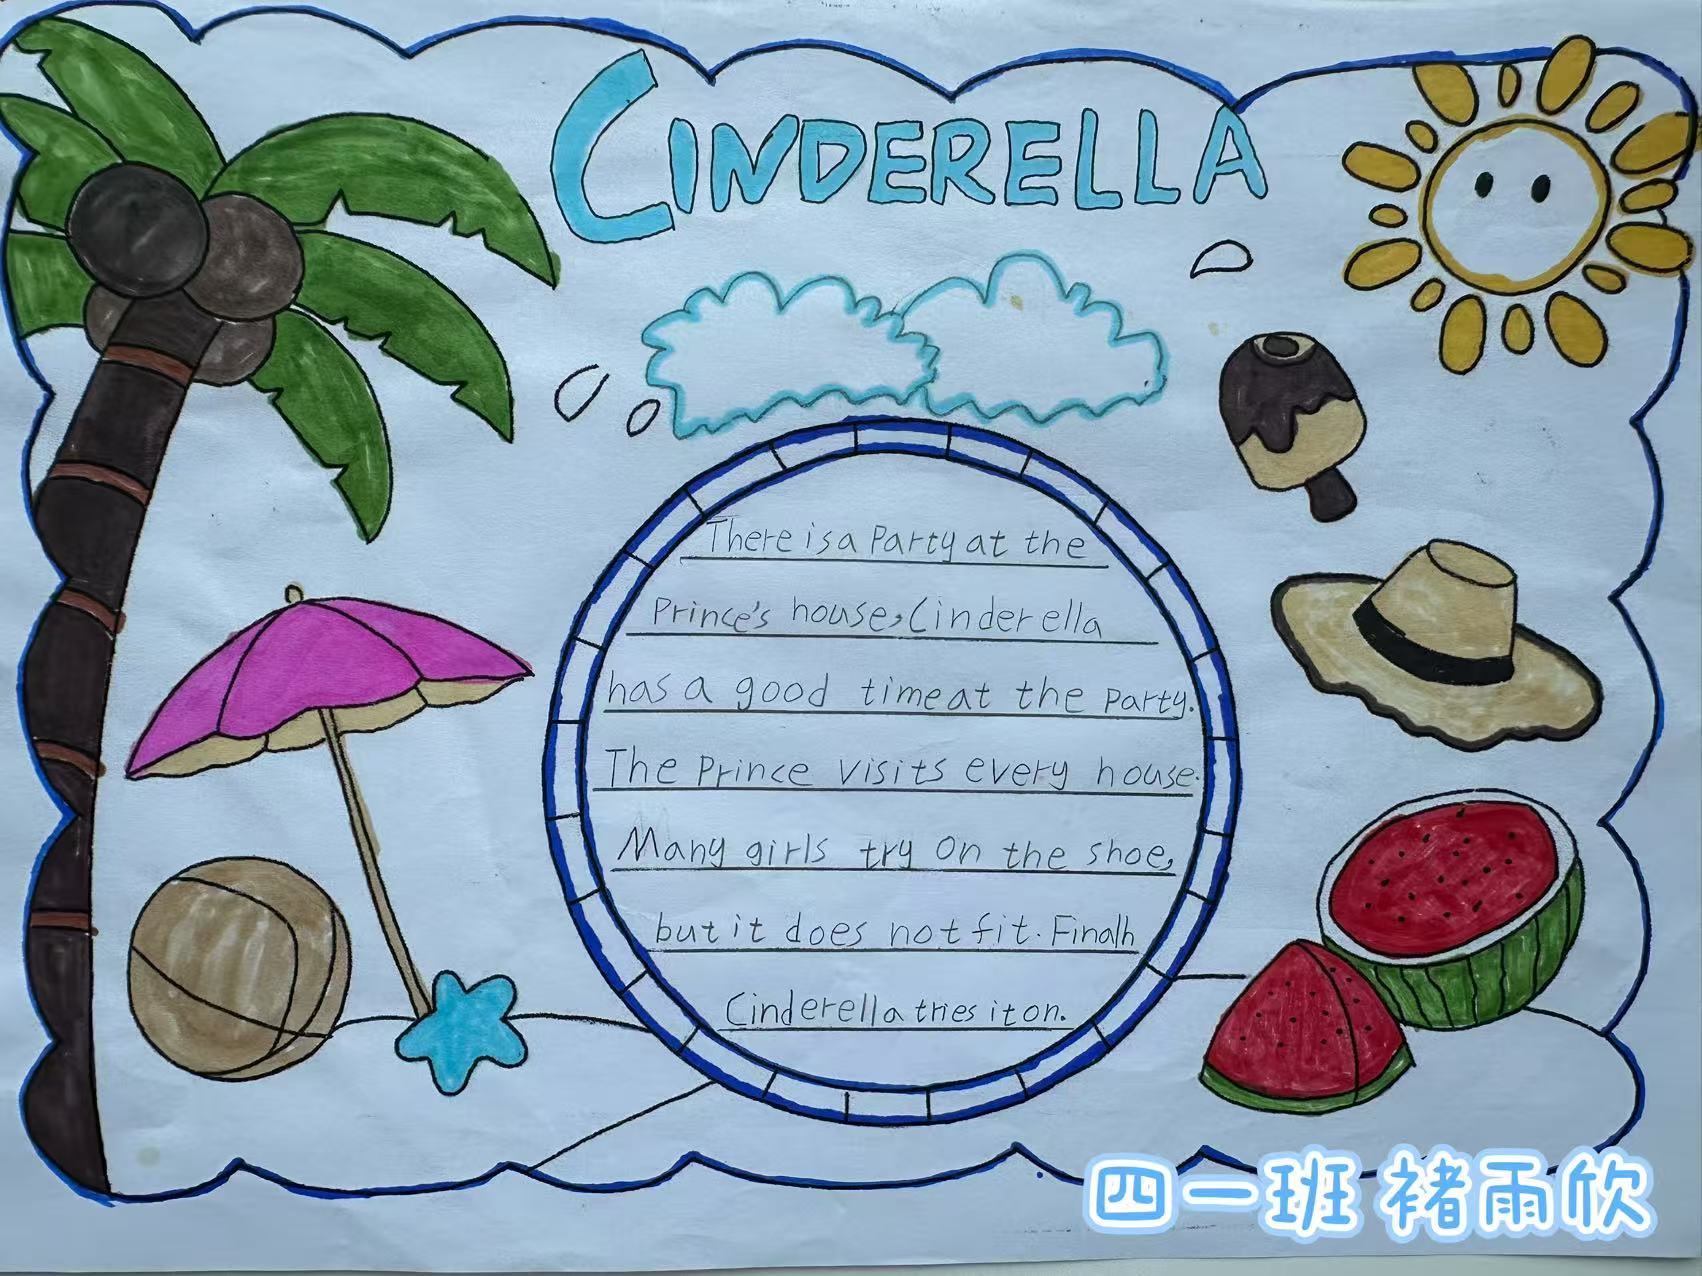 CINDERELLA
There is a Party at the
Prince's house, Cinderella
has a good time at the Party.
The Prince visits every house.
Many girls try on the shoe,
but it does not fit. Finalh
Cinderella tries it on.
四一班 褚雨欣